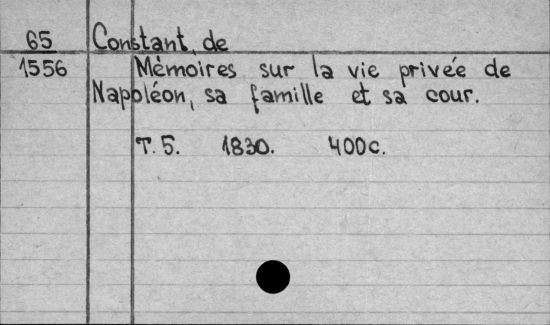 65 Constant, de
1556 Mémoires sur la vie privée de
Napoléon, sa famille et sa cour.
T. 5. 1830. 400c.